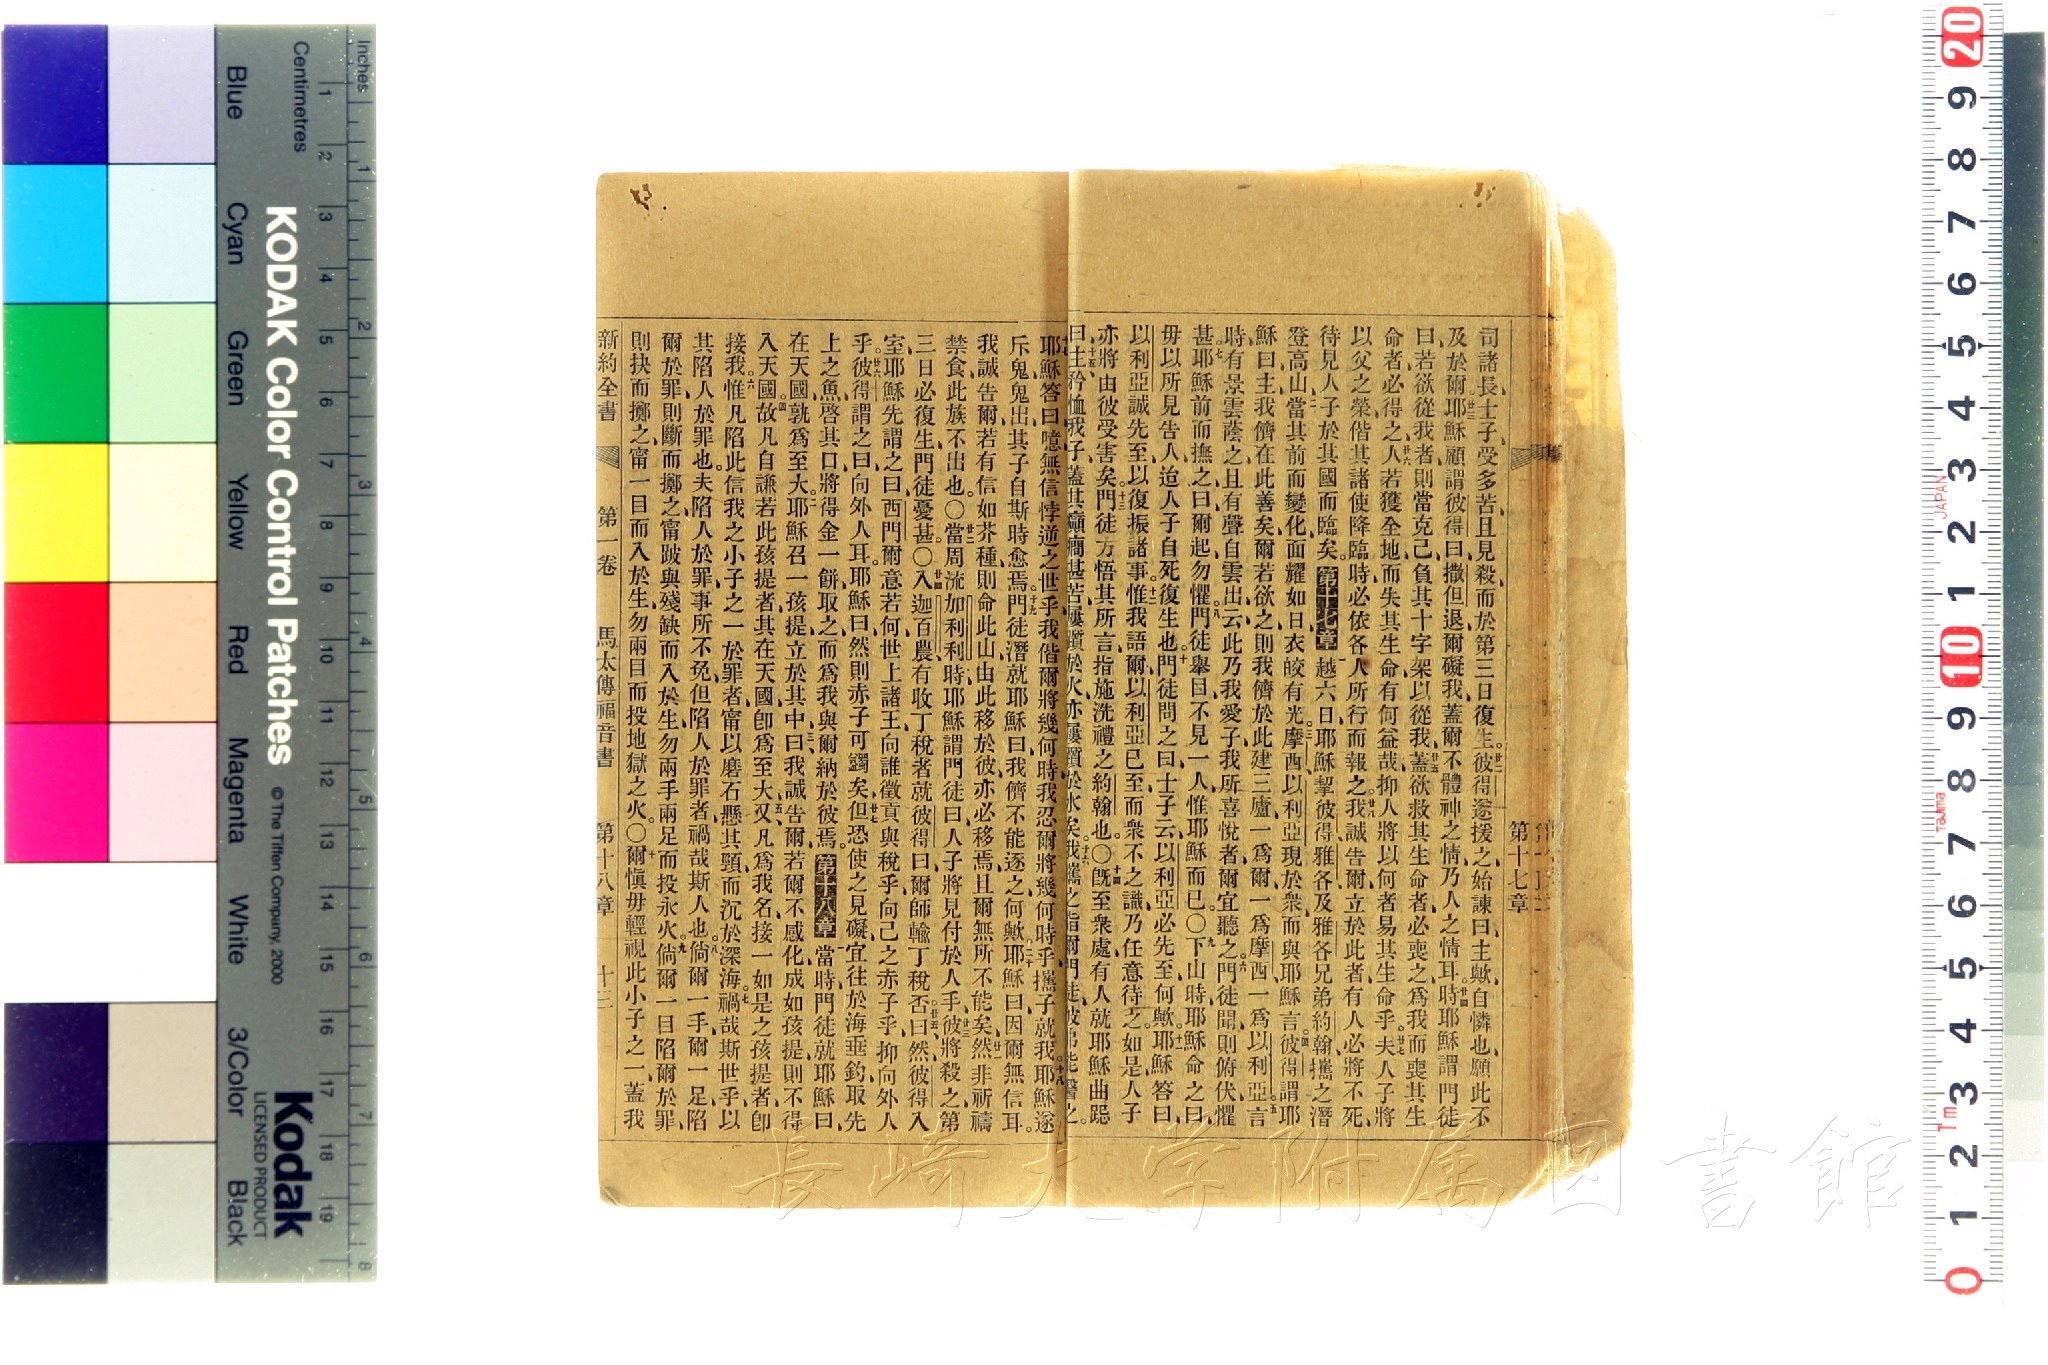 司諸長士子受多苦且見殺而於第三日復生彼得遂援之始諫曰主歟自憐也願此不
及於爾耶穌顧謂彼得曰撒但退爾礙我蓋爾不體神之情乃人之情耳時耶穌謂門徒
曰若欲從我者則當克己負其十字架以從我蓋欲救其生命者必喪之爲我而喪其生
命者必得之人若獲全地而失其生命有何益哉抑人將以何者易其生命乎夫人子將
以父之榮偕其諸使降臨時必依各人所行而報之我誠告爾立於此者有人必將不死
待見人子於其國而臨矣第十七章越六日耶穌挈彼得雅各及雅各兄弟約翰攜之潛
登高山當其前而變化面耀如日衣皎有光摩西以利亞現於衆而與耶穌言彼得謂耶
穌曰主我儕在此善矣爾若欲之則我儕於此建三廬一爲爾一爲摩西一爲以利亞言
時有景雲蔭之且有聲自雲出云此乃我愛子我所喜悅者爾宜聽之門徒聞則俯伏懼
甚耶穌前而撫之曰爾起勿懼門徒舉目不見一人惟耶穌而已〇下山時耶穌命之曰
毋以所見告人迨人子自死復生也門徒問之曰士子云以利亞必先至何歟耶穌答曰
以利亞誠先至以復振諸事惟我語爾以利亞已至而衆不之識乃任意待之如是人子
亦將由彼受害矣門徒方悟其所言指施洗禮之約翰也〇旣至衆處有人就耶穌曲跽
曰主矜恤我子蓋其癲癇甚苦屢躓於火亦屢躓於水矣我攜之詣爾門徒彼弗能醫之
耶穌答曰噫無信悖逆之世乎我偕爾將幾何時我忍爾將幾何時乎攜子就我耶穌遂
斥鬼鬼出其子自斯時愈焉門徒潛就耶穌曰我儕不能逐之何歟耶穌曰因爾無信耳
我誠告爾若有信如芥種則命此山由此移於彼亦必移焉且爾無所不能矣然非祈禱
禁食此族不出也〇當周流加利利時耶穌謂門徒曰人子將見付於人手彼將殺之第
三日必復生門徒憂甚〇入迦百農有收丁稅者就彼得曰爾師輸丁稅否曰然彼得入
室耶穌先謂之曰西門爾意若何世上諸王向誰徵貢與稅乎向己之赤子乎抑向外人
乎彼得謂之曰向外人耳耶穌曰然則赤子可蠲矣但恐使之見礙宜往於海垂釣取先
上之魚啓其口將得金一餅取之而爲我與爾納於彼焉第十八章當時門徒就耶穌曰
在天國孰爲至大耶穌召一孩提立於其中曰我誠告爾若爾不感化成如孩提則不得
入天國故凡自謙若此孩提者其在天國卽爲至大又凡爲我名接一如是之孩提者卽
接我惟凡陷此信我之小子之一於罪者寗以磨石懸其頸而沉於深海禍哉斯世乎以
其陷人於罪也夫陷人於罪事所不免但陷人於罪者禍哉斯人也倘爾一手爾一足陷
爾於罪則斷而擲之寗跛與殘缺而入於生勿兩手兩足而投永火倘爾一目陷爾於罪
則抉而擲之寗一目而入於生勿兩目而投地獄之火〇爾愼毋輕視此小子之一蓋我
新約全書 第一卷 馬太傳福音書 第十八章 十三
第十七章
長崎大学附属図書館
KODAK Color Control Patches
© The Tiffen Company, 2000
Kodak
LICENSED PRODUCT
Inches
Centimetres
Blue Cyan Green Yellow Red Magenta White 3/Color Black
1 2 3 4 5 6 7 8 9 10 11 12 13 14 15 16 17 18 19
1 2 3 4 5 6 7 8
20 9 8 7 6 5 4 3 2 1 10 9 8 7 6 5 4 3 2 1 0
JAPAN
Tajima